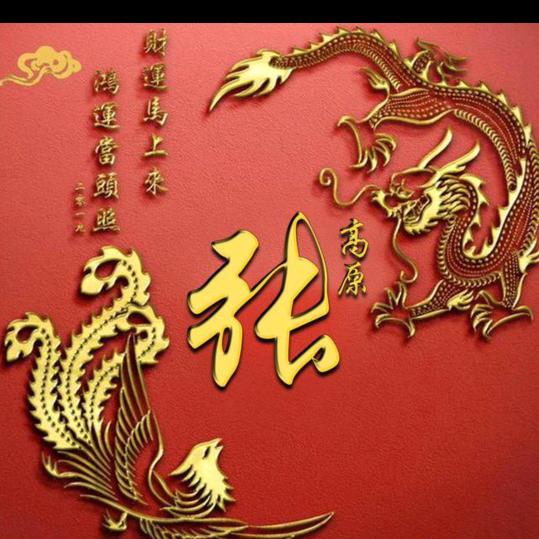 財運馬上來
鴻運當頭照
二零一九
张
高原